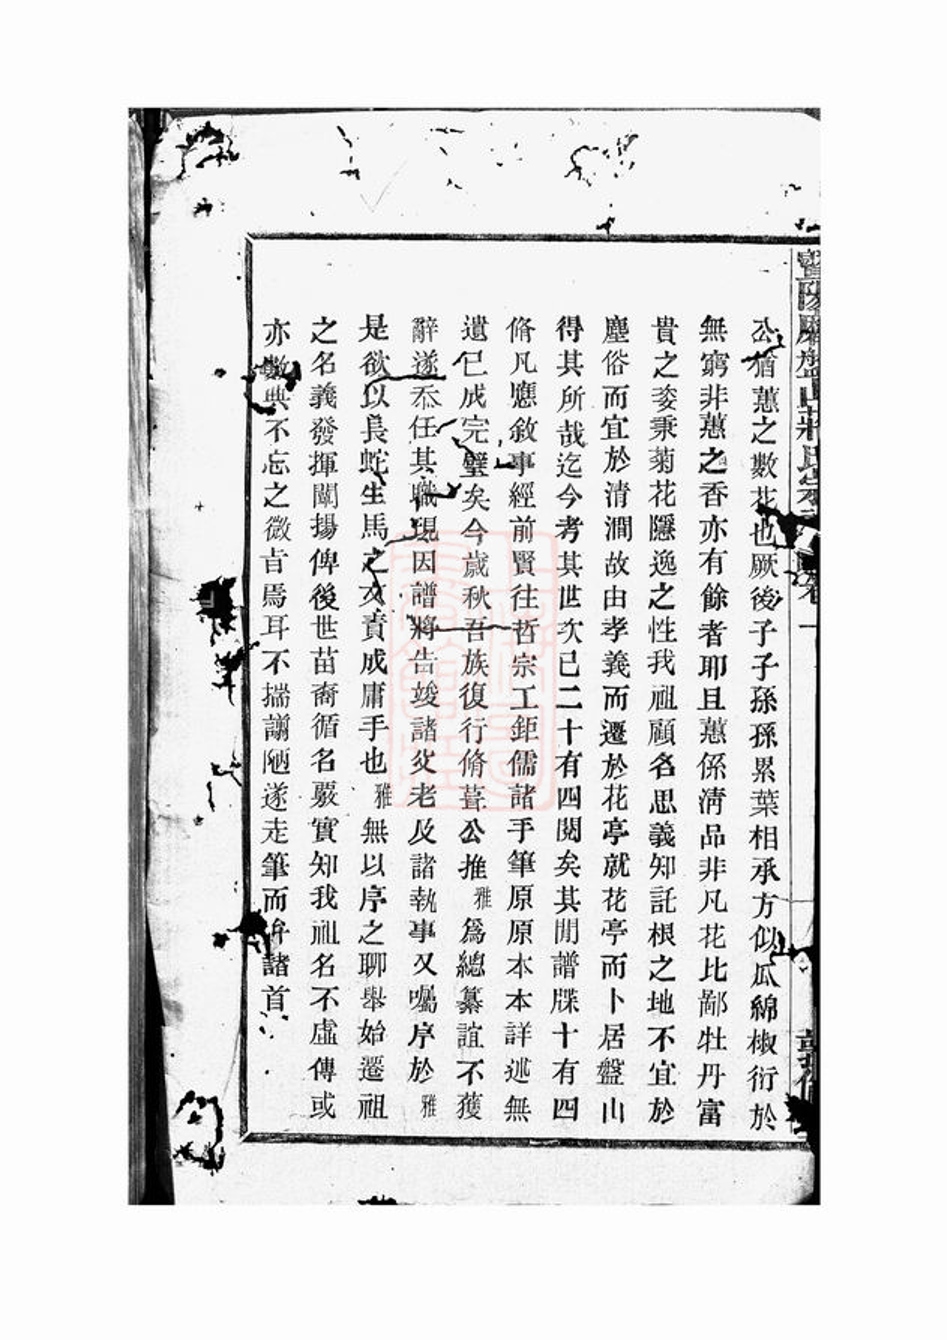 公猶蕙之數花也厥後子子孫孫累葉相承方似瓜綿椒衍於
無窮非蕙之香亦有餘者耶且蕙係淸品非凡花比鄙牡丹富
貴之姿秉菊花隱逸之性我祖顧名思義知託根之地不宜於
塵俗而宜於清澗故由孝義而遷於花亭就花亭而卜居盤山
得其所哉迄今考其世次已二十有四閱矣其閒譜牒十有四
脩凡應敘事經前賢往哲宗工鉅儒諸手筆原原本本詳述無
遺已成完璧矣今歲秋吾族復行脩葺公推雅爲總纂誼不獲
辭遂忝任其職現因譜將告竣諸父老及諸執事又囑序於雅
是欲以長蛇生馬之文責成庸手也雅無以序之聊舉始遷祖
之名義發揮闡揚俾後世苗裔循名覈實知我祖名不虛傳或
亦數典不忘之微旨焉耳不揣譾陋遂走筆而弁諸首
暨陽盤山蔣氏宗譜 卷一